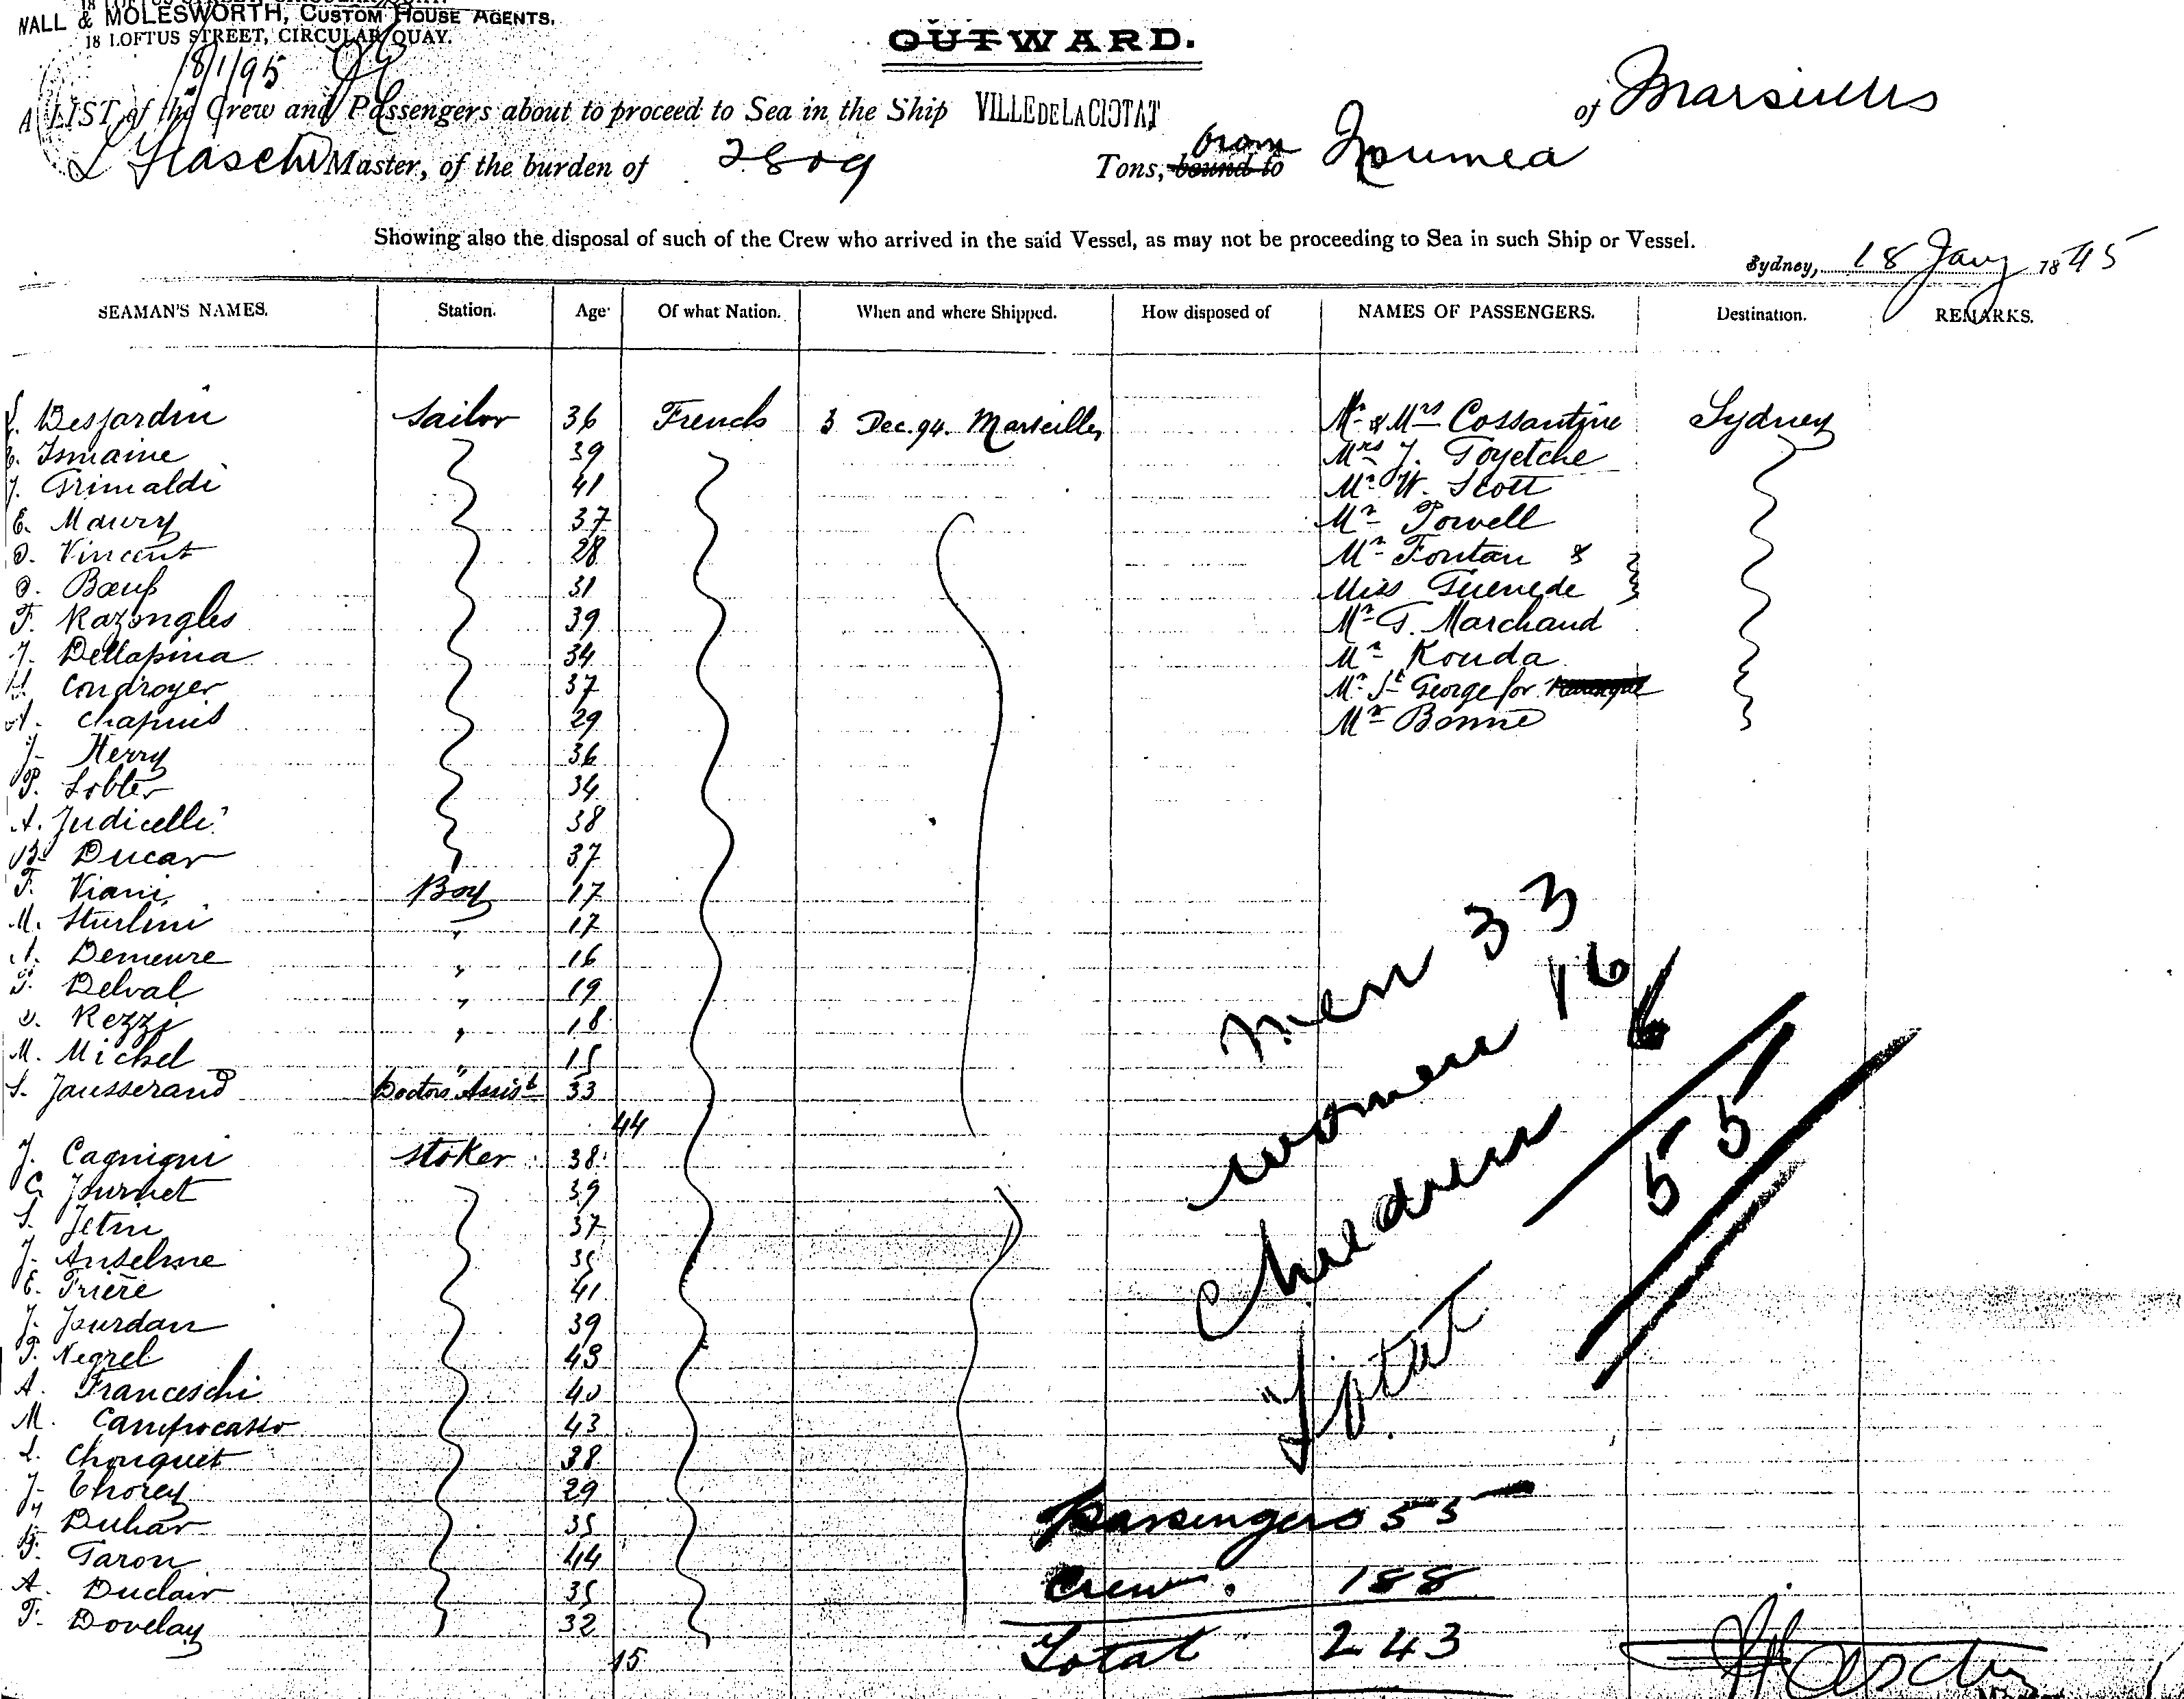 WALL & MOLESWORTH, CUSTOM HOUSE AGENTS.
18 LOFTUS STREET, CIRCULAR QUAY.
18/1/95
OUTWARD.
A LIST of the Crew and Passengers about to proceed to Sea in the Ship VILLE DE LA CIOTAT of Marseilles
Master, of the burden of 2809 Tons, bound to from Noumea
Showing also the disposal of such of the Crew who arrived in the said Vessel, as may not be proceeding to Sea in such Ship or Vessel.
Sydney, 18 Jany 1895
SEAMAN'S NAMES. Station. Age Of what Nation. When and where Shipped. How disposed of NAMES OF PASSENGERS. Destination. REMARKS.
Desjardin Sailor 36 French 3 Dec. 94. Marseilles Mr & Mrs Cossantine Sydney
Ismaine 39 Mrs J. Goyetche
J. Grimaldi 41 Mr W. Scott
E. Maury 37 Mr Powell
Vincent 28 Mr Fontan &
Bœuf 31 Miss Guenede
F. Razongles 39 Mr G. Marchand
J. Dellapina 34 Mr Kouda
Condroyer 37 Mr St George for
A. Chapuis 29 Mr Bonne
J. Herry 36
P. Lobter 34
A. Judicelli 38
B. Ducar 37
F. Viani Boy 17
M. Sturlini " 17
A. Demeure " 16
Delval " 19
Rezzi " 18
M. Michel " 15
L. Jausserand Doctors Assist 33
44
J. Cagnigni stoker 38
C. Journet 39
Jetin 37
J. Anselme 35
E. Frière 41
J. Jourdan 39
F. Negrel 43
A. Franceschi 40
M. Campocasso 43
L. Chouquet 38
J. Thorey 29
Duhar 35
Taron 44
A. Duclair 35
F. Dovelay 32
15
men 33
women 16
Children 6
Total 55
Passengers 55
Crew. 188
Total 243